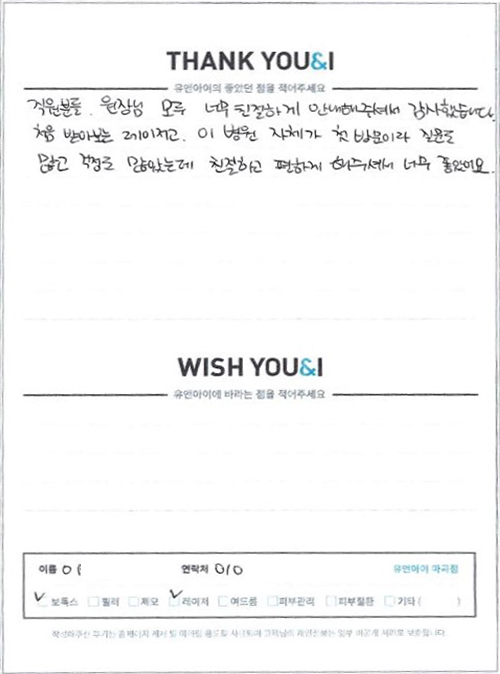 THANK YOU&I
유앤아이의 좋았던 점을 적어주세요
직원분들, 원장님 모두 너무 친절하게 안내해주셔서 감사했습니다.
처음 받아보는 레이저고, 이 병원 자체가 첫 방문이라 질문도
많고 걱정도 많았는데 친절하고 편하게 해주셔서 너무 좋았어요.
WISH YOU&I
유앤아이에 바라는 점을 적어주세요
이름 이 연락처 010 유앤아이 마곡점
보톡스 필러 제모 레이저 여드름 피부관리 피부질환 기타 ( )